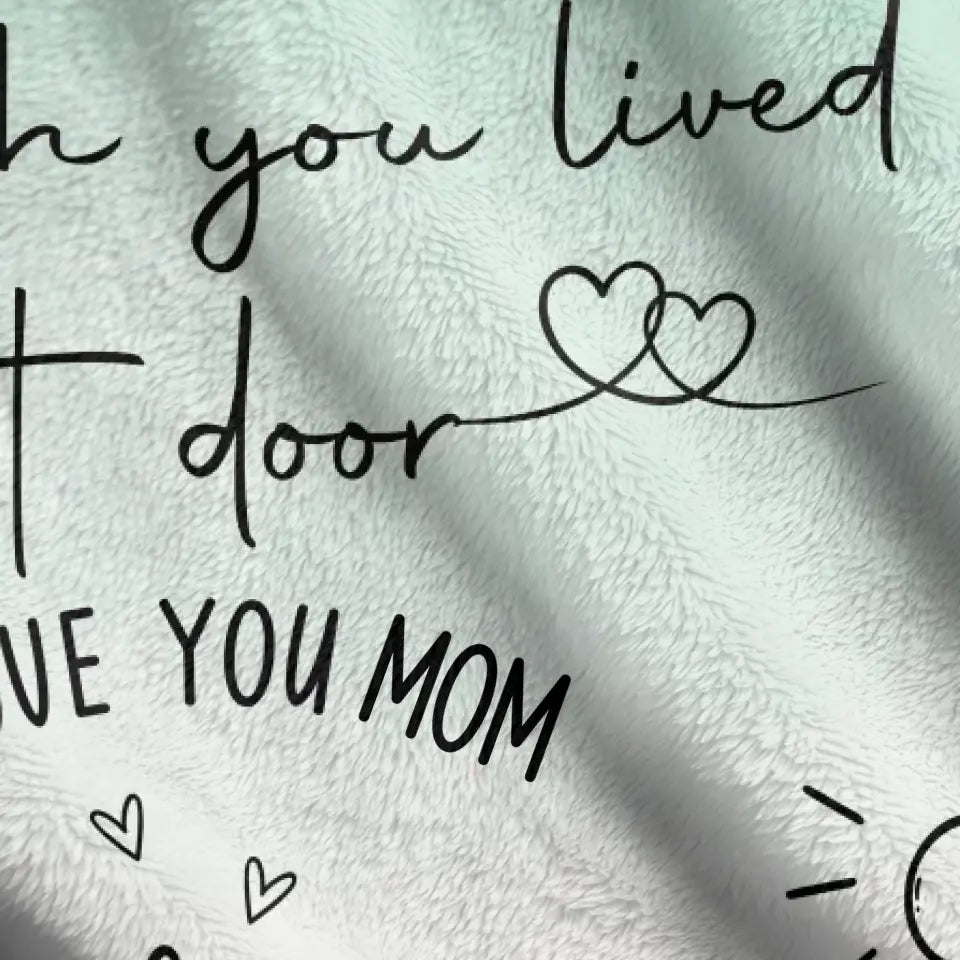 h you lived
t door
VE YOU MOM